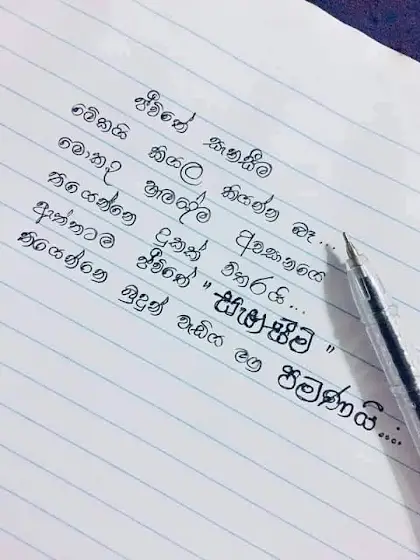 ජීවිතේ සැනසීම
මේකයි කියල කියන්න බෑ...
මොකද හැමදේම අවසානයෙ
තියෙන්නෙ දුකක් විතරයි...
ඇත්තටම ජීවිතේ "සැනසීම"
තියෙන්නෙ බුදුන් වැඩිය මග පමණයි....